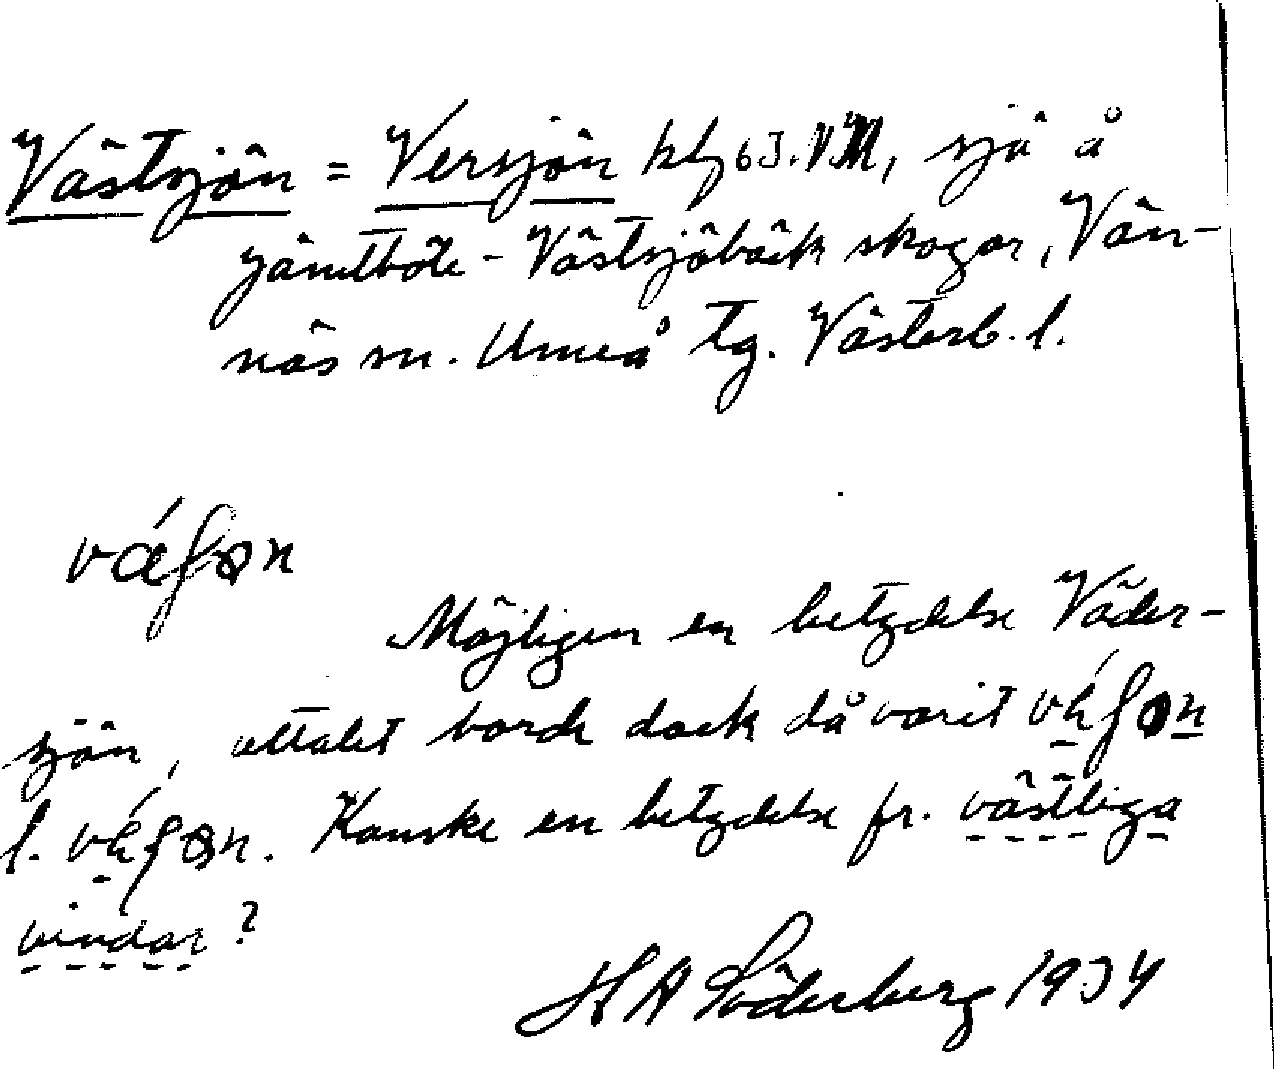 Västsjön = Versjön kbl 63. V.M, sjö å
Jämtböle - Västsjöbäck skogar, Vän-
näs sn. Umeå tg. Västerb. l.
væʃøn
Möjligen en betydelse Väder-
sjön, uttalet borde dock då varit
l. Kanske en betydelse fr. västliga
vindar?
H A Söderberg 1934